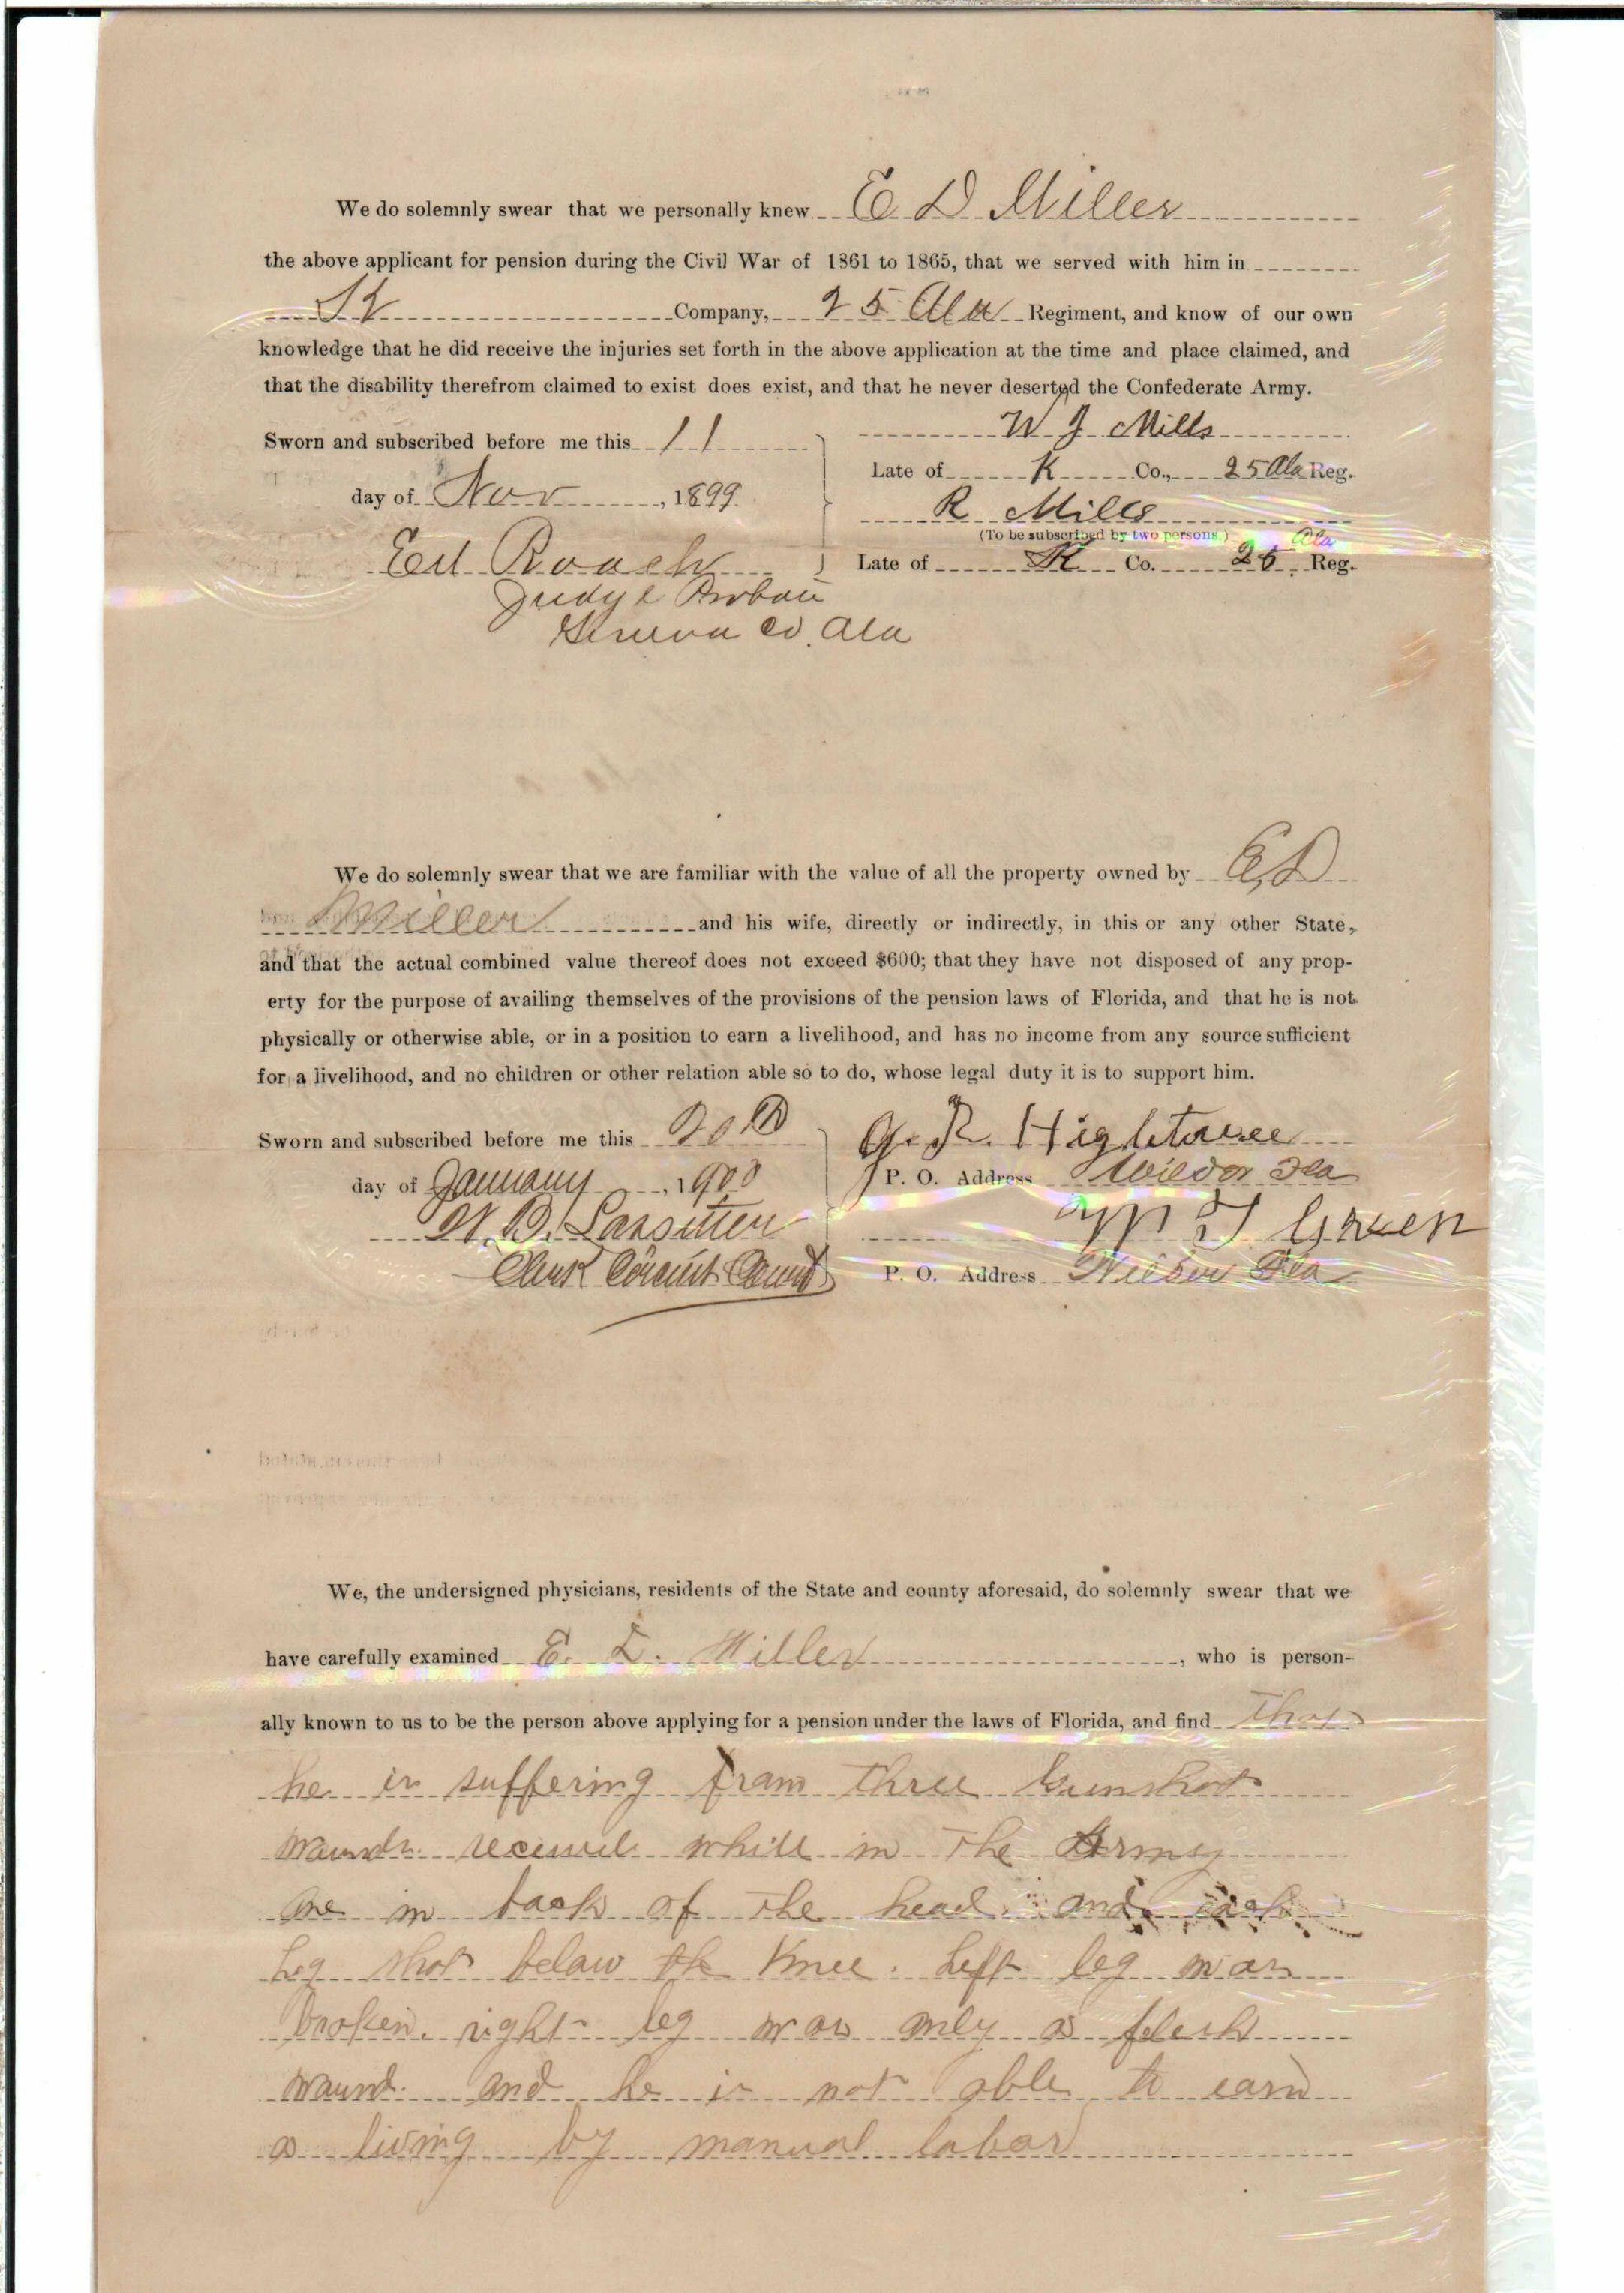 We do solemnly swear that we personally knew E D Miller
the above applicant for pension during the Civil War of 1861 to 1865, that we served with him in
K Company, 25 Ala Regiment, and know of our own
knowledge that he did receive the injuries set forth in the above application at the time and place claimed, and
that the disability therefrom claimed to exist does exist, and that he never deserted the Confederate Army.
Sworn and subscribed before me this 11
day of Nov, 1899.
Ed Roach
Judge Probate
Geneva Co, Ala
W J Mills
Late of K Co., 25 Ala Reg.
R Mills
(To be subscribed by two persons.)
Late of K Co. 25 Ala Reg.
We do solemnly swear that we are familiar with the value of all the property owned by E, D
Miller and his wife, directly or indirectly, in this or any other State,
and that the actual combined value thereof does not exceed $600; that they have not disposed of any prop-
erty for the purpose of availing themselves of the provisions of the pension laws of Florida, and that he is not
physically or otherwise able, or in a position to earn a livelihood, and has no income from any source sufficient
for a livelihood, and no children or other relation able so to do, whose legal duty it is to support him.
Sworn and subscribed before me this 20th
day of January, 1900
W. B. Lassitter
Clerk Circuit Court
R. Hightower
P. O. Address Fla
M T Green
P. O. Address Fla
We, the undersigned physicians, residents of the State and county aforesaid, do solemnly swear that we
have carefully examined E. D. Miller, who is person-
ally known to us to be the person above applying for a pension under the laws of Florida, and find that
he is suffering from three Gunshot
wounds received while in the Army
one in back of the head. and each
Leg shot below the Knee. Left leg was
broken. right leg was only a flesh
wound. and he is not able to earn
a living by manual labor